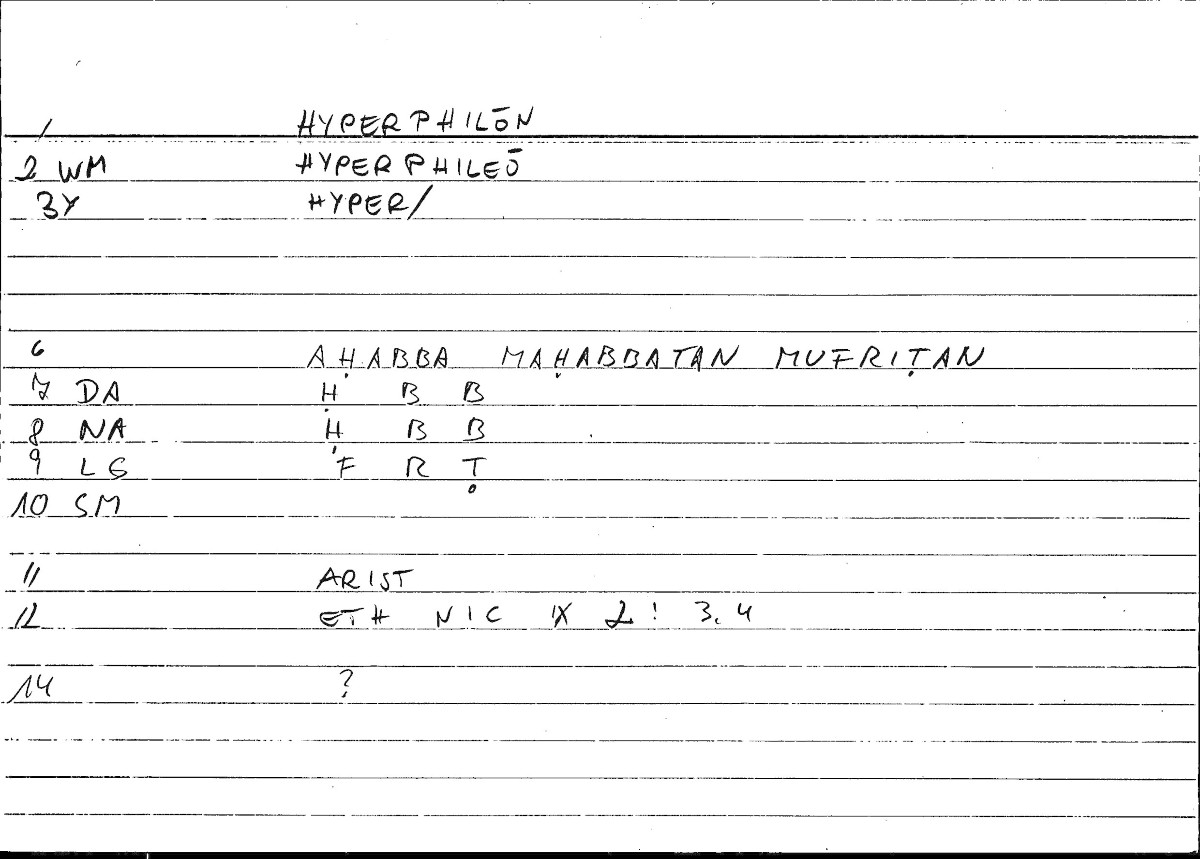 1 HYPERPHILŌN
2 WM HYPERPHILEŌ
3Y HYPER/
6 AḤABBA MAḤABBATAN MUFRIṬAN
7 DA Ḥ B B
8 NA Ḥ B B
9 LG F R Ṭ
10 SM
11 ARIST
12 ETH NIC IX 2! 3,4
14 ?